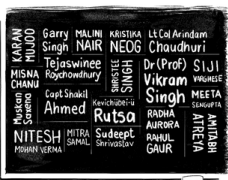 KARAN
MUJOO
Garry
Singh
MALINI
NAIR
KRISTIKA
NEOG
Lt Col Arindam
Chaudhuri
MISNA
CHANU
Tejaswinee
Roychowdhury
SHRISTEE
SINGH
Dr (Prof)
Vikram
Singh
SIJI
VARGHESE
Muskan
Saxena
Capt Shakil
Ahmed
Kevichübei-ü
Rutsa
MEETA
SENGUPTA
NITESH
MOHAN VERMA
MITRA
SAMAL
Sudeept
Shrivastav
RADHA
AURORA
RAHUL
GAUR
AMITABH
ATREYA